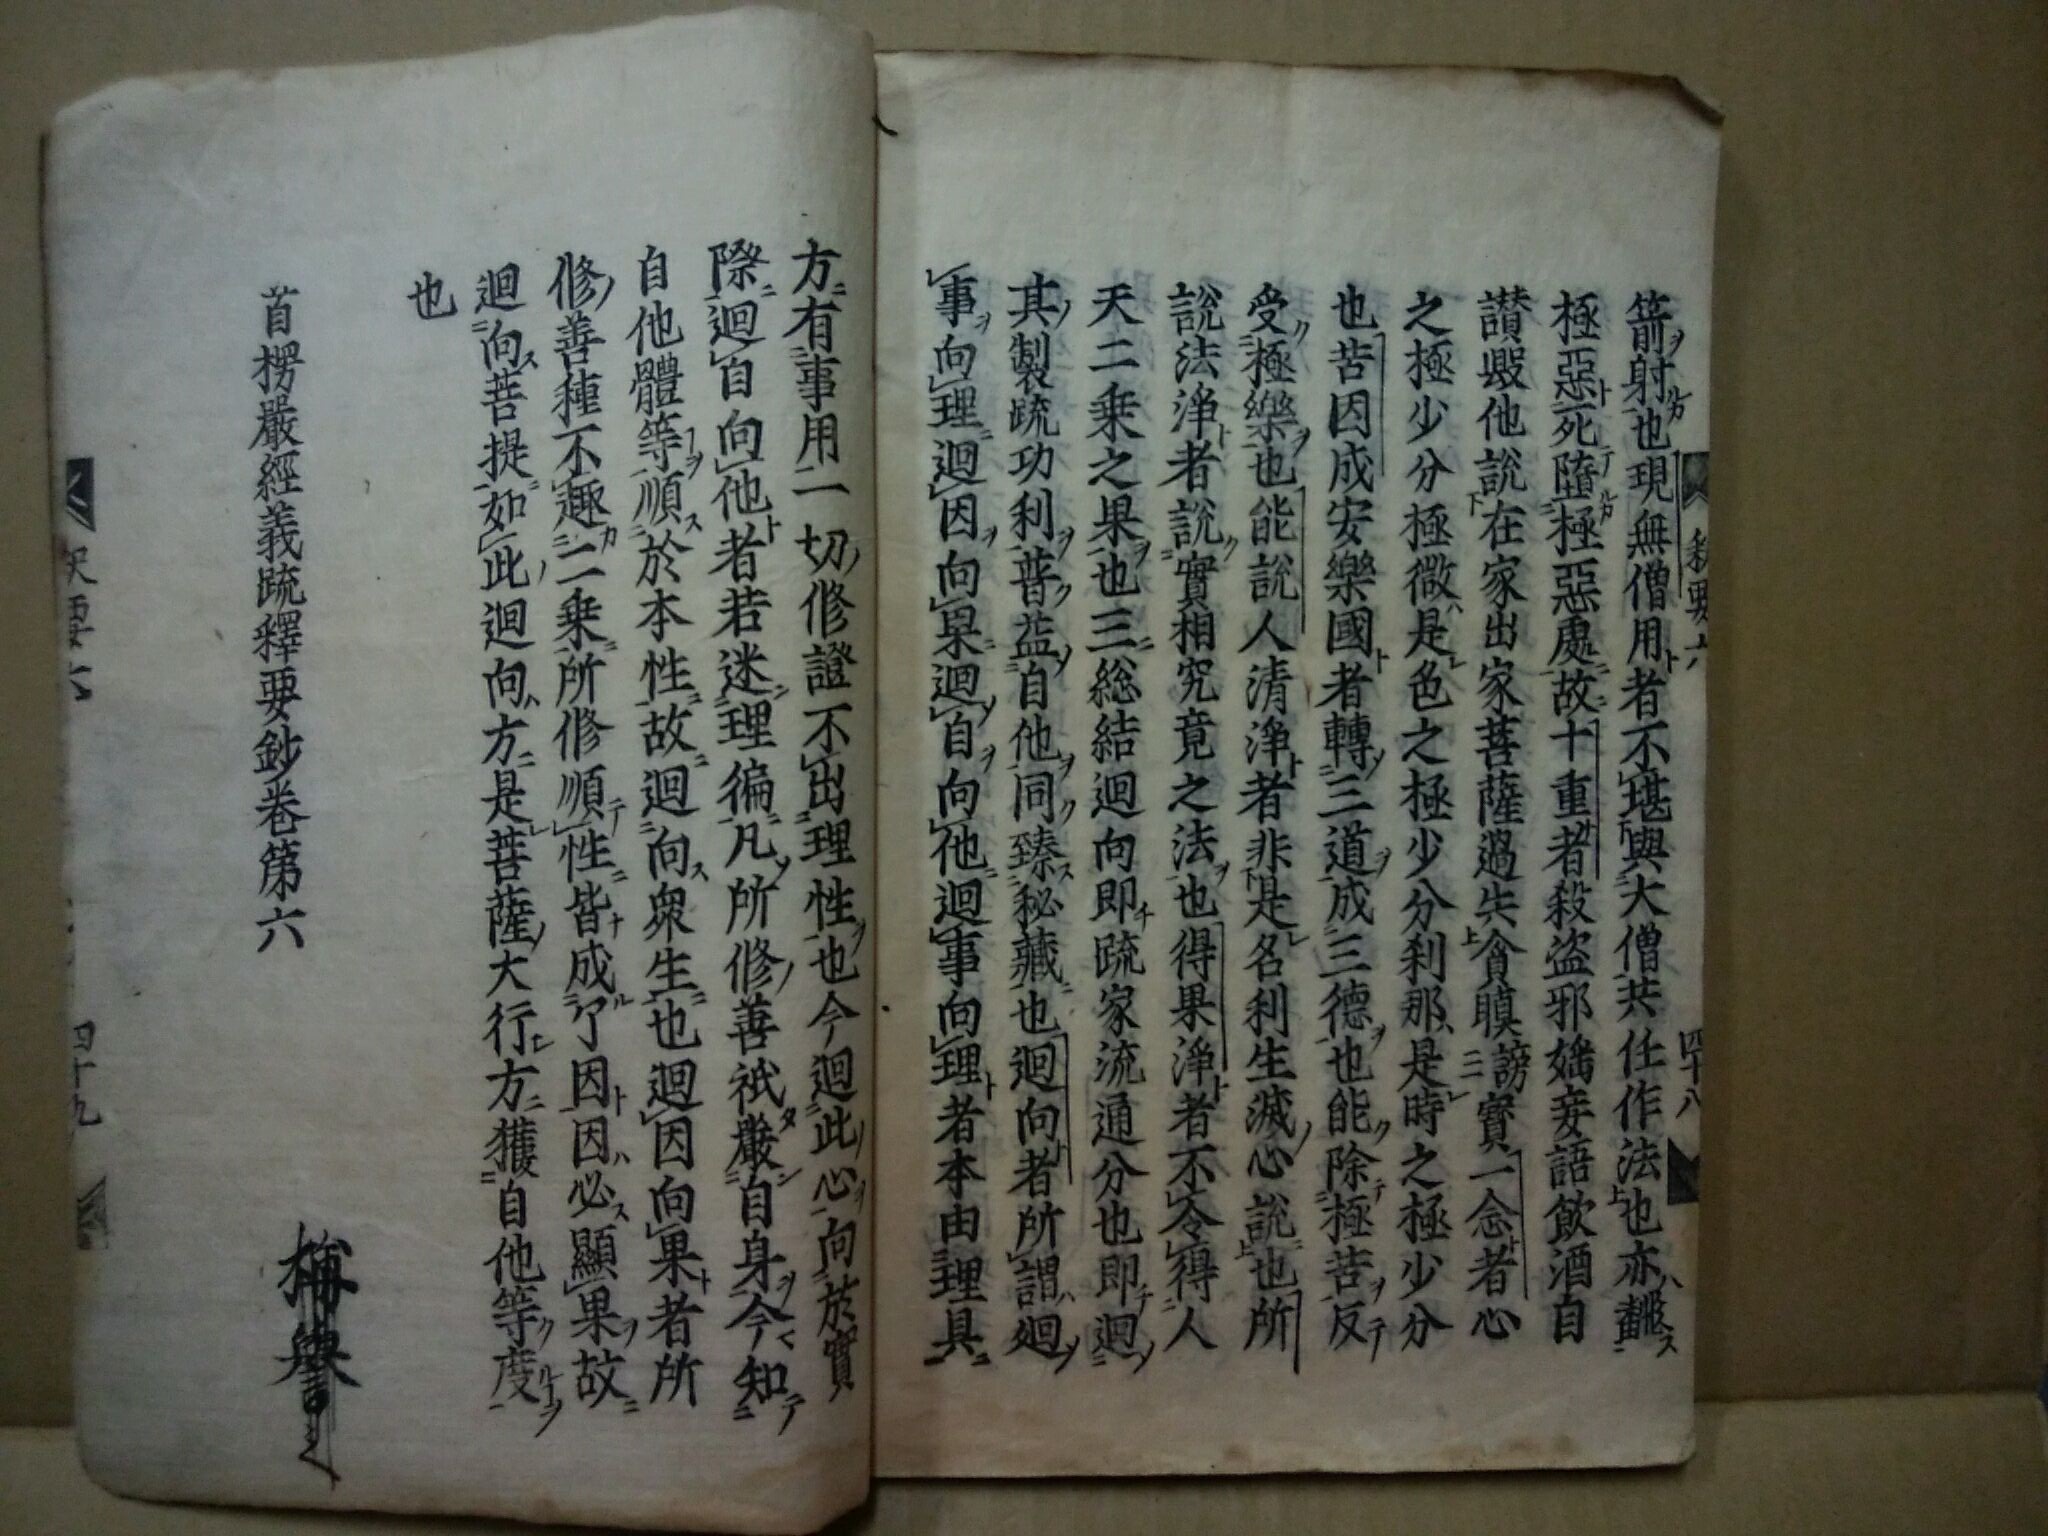 箭射也現無僧用者不堪與大僧共任作法也亦翻
極惡死墮極惡處故十重者殺盜邪婬妄語飲酒自
讃毀他說在家出家菩薩過失貪瞋謗三寶一念者心
之極少分極微是色之極少分刹那是時之極少分
也苦因成安樂國者轉三道成三德也能除極苦反
受極樂也能說人清淨者非是名利生滅心說也所
說法淨者說實相究竟之法也得果淨者不令得人
天二乗之果也三総結迴向即疏家流通分也即迴
其製疏功利普益自他同臻秘藏也迴向者所謂迴
事向理迴因向果迴自向他迴事向理者本由理具
方有事用一切修證不出理性也今迴此心向於實
際迴自向他者若迷理徧凡所修善祇嚴自身今知
自他體等順於本性故迴向衆生也迴因向果者所
修善種不趣二乗所修順性皆成了因因必顯果故
迴向菩提如此迴向方是菩薩大行方獲自他等度
也
首楞嚴經義疏釋要鈔卷第六
六
四十八
四十九